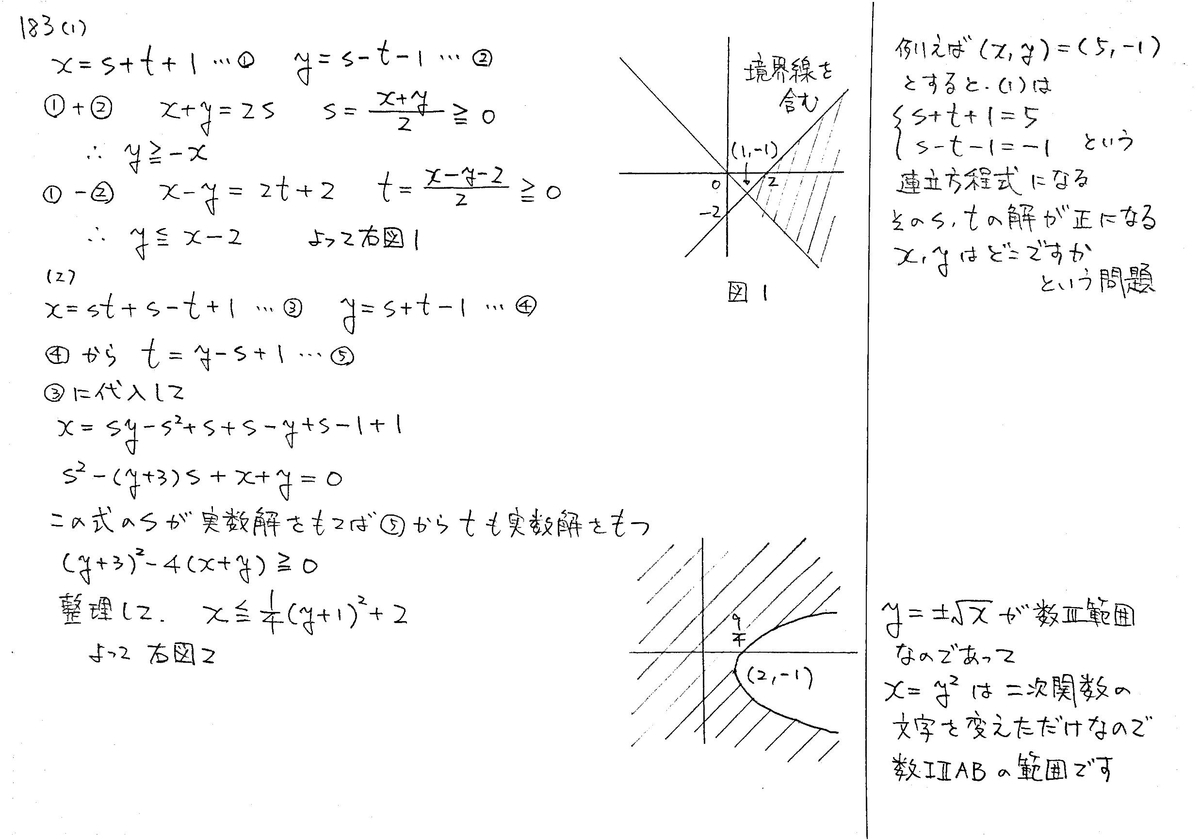 183(1)
x=s+t+1 … ① y=s-t-1 … ②
①+② x+y=2s s=\frac{x+y}{2}≧0
∴ y≧-x
①-② x-y=2t+2 t=\frac{x-y-2}{2}≧0
∴ y≦x-2 よって右図1
境界線を
含む
(1,-1)
0
2
-2
図1
(2)
x=st+s-t+1 … ③ y=s+t-1 … ④
④から t=y-s+1 … ⑤
③に代入して
x=sy-s²+s+s-y+s-1+1
s²-(y+3)s+x+y=0
この式のsが実数解をもてば⑤からtも実数解をもつ
(y+3)²-4(x+y)≧0
整理して. x≦\frac{1}{4}(y+1)²+2
よって 右図2
\frac{9}{4}
(2,-1)
例えば(x,y)=(5,-1)
とすると.(1)は
{s+t+1=5
{s-t-1=-1 という
連立方程式になる
そのs,tの解が正になる
x,yはどこですか
という問題
y=±√xが数Ⅲ範囲
なのであって
x=y²は二次関数の
文字を変えただけなので
数ⅠⅡABの範囲です